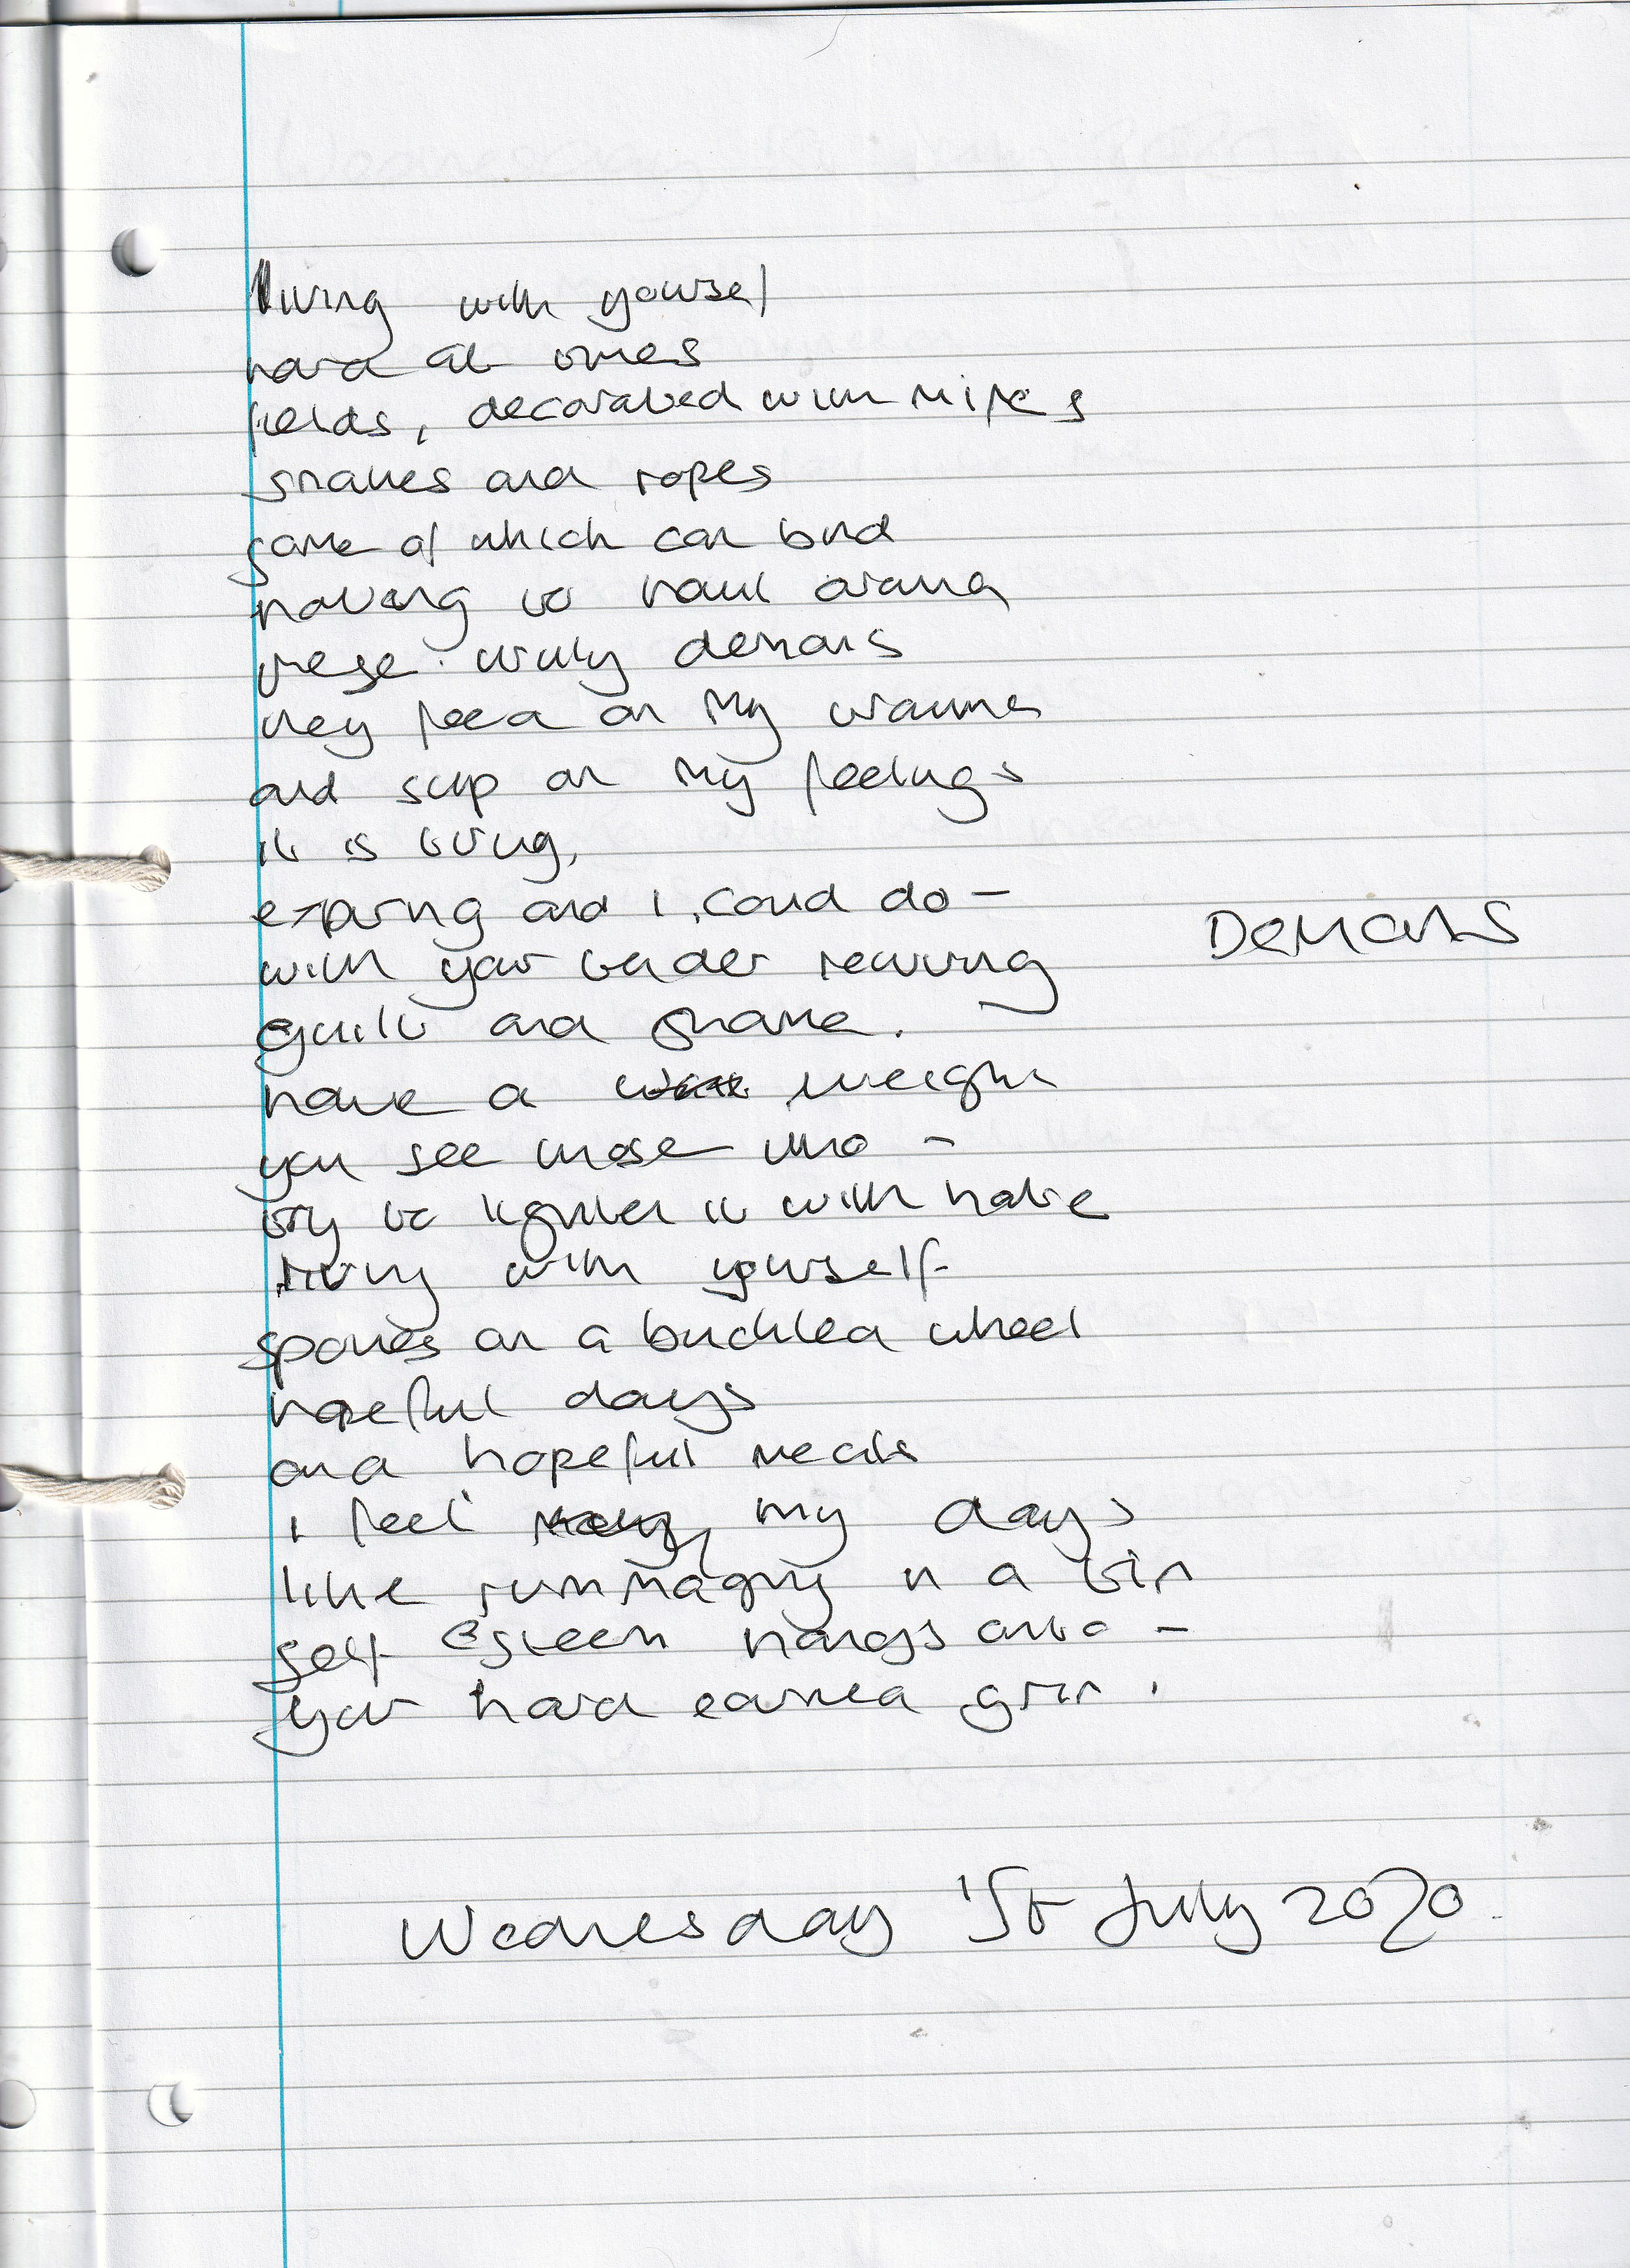 living with yoursel
hard at times
fields, decorated with
snakes and ropes
some of which can bind
having to haul around
these unruly demons
they feed on my traumas
and sup on my feelings
it is tiring,
expiring and I could do -
with your tender reviving
guilt and shame.
have a weight
you see those who -
try to lighten it with hate
living with yourself
spokes on a buckled wheel
hopeful days
and hopeful meals
i feel my days
like rummaging in a bin
self esteem hangs onto -
your hard earned grin.
Demons
Wednesday 1st July 2020